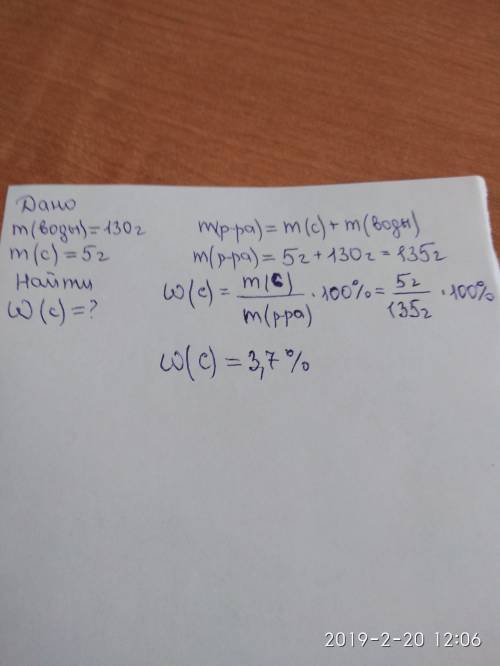 Дано
m(воды)=130г
m(с)=5г
Найти
W(с)=?
m(р-ра)=m(с)+m(воды)
m(р-ра)=5г+130г=135г
ω(с)=m(с)/m(р-ра)·100%=5г/135г·100%
ω(с)=3,7%
2019-2-20 12:06